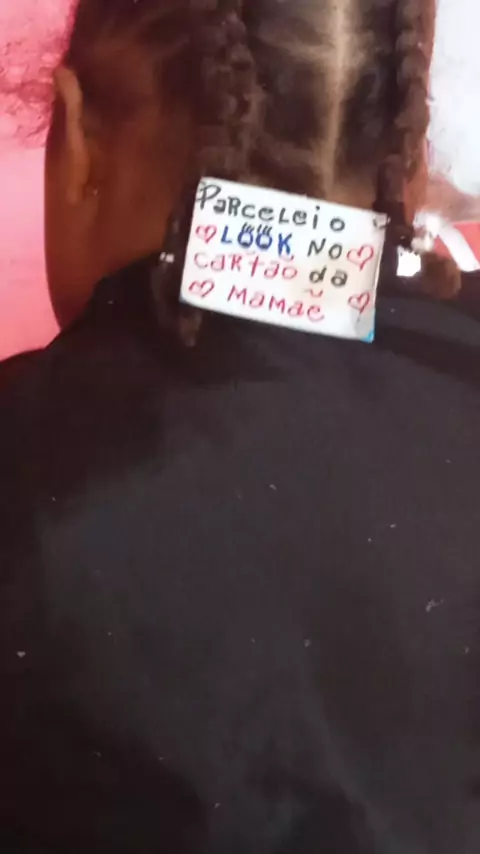 Parcelei o
LOOK NO
cartão da
mamãe